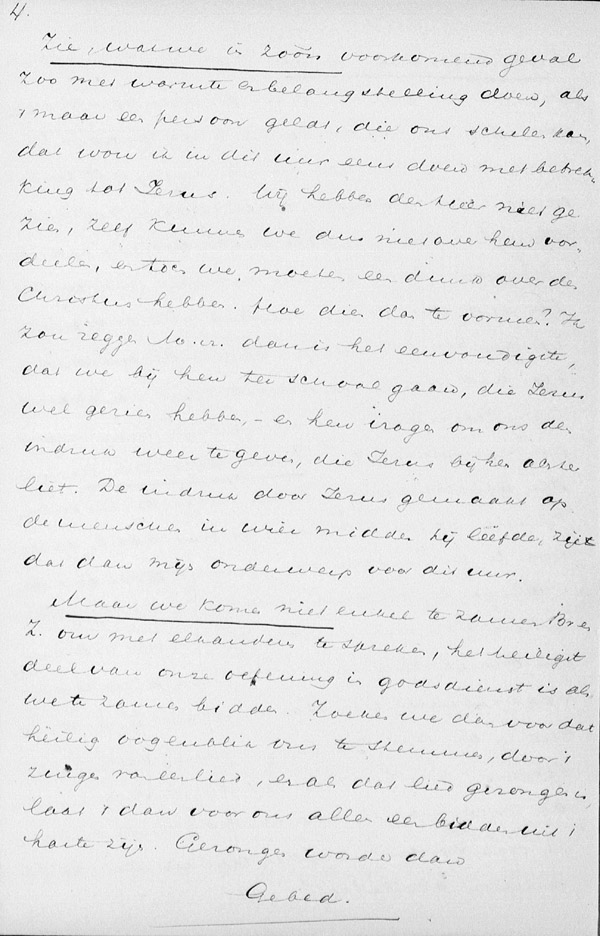 4.
Zie, wat we in zóó'n voorkomend geval
zoo met warmte en belangstelling doen, als
't maar een persoon geldt, die ons schelen kan,
dat wou ik in dit uur eens doen met betrek-
king tot Jezus. Wij hebben den Heer niet ge
zien, zelf kunnen we dus niet over hem oor-
deelen, en toch we moeten een dunk over den
Christus hebben. Hoe dien dan te vormen? Ik
zou zeggen M. v. dan is het eenvoudigste,
dat we bij hen ter school gaan, die Jezus
wel gezien hebben, – en hen vragen om ons den
indruk weer te geven, die Jezus bij hen achter
liet. De indruk door Jezus gemaakt op
de menschen in wier midden hij leefde, zij
dat dan mijn onderwerp voor dit uur.
Maar we komen niet enkel te zamen Br. en
Z. om met elkander te spreken, het heiligst
deel van onze oefening in godsdienst is als
we te zamen bidden. Zoeken we dan voor dat
heilig oogenblik ons te stemmen, door 't
zingen van een lied, en als dat lied gezongen is
laat 't dan voor ons allen een bidden uit 't
harte zijn. Gezongen worde dan
Gebed.